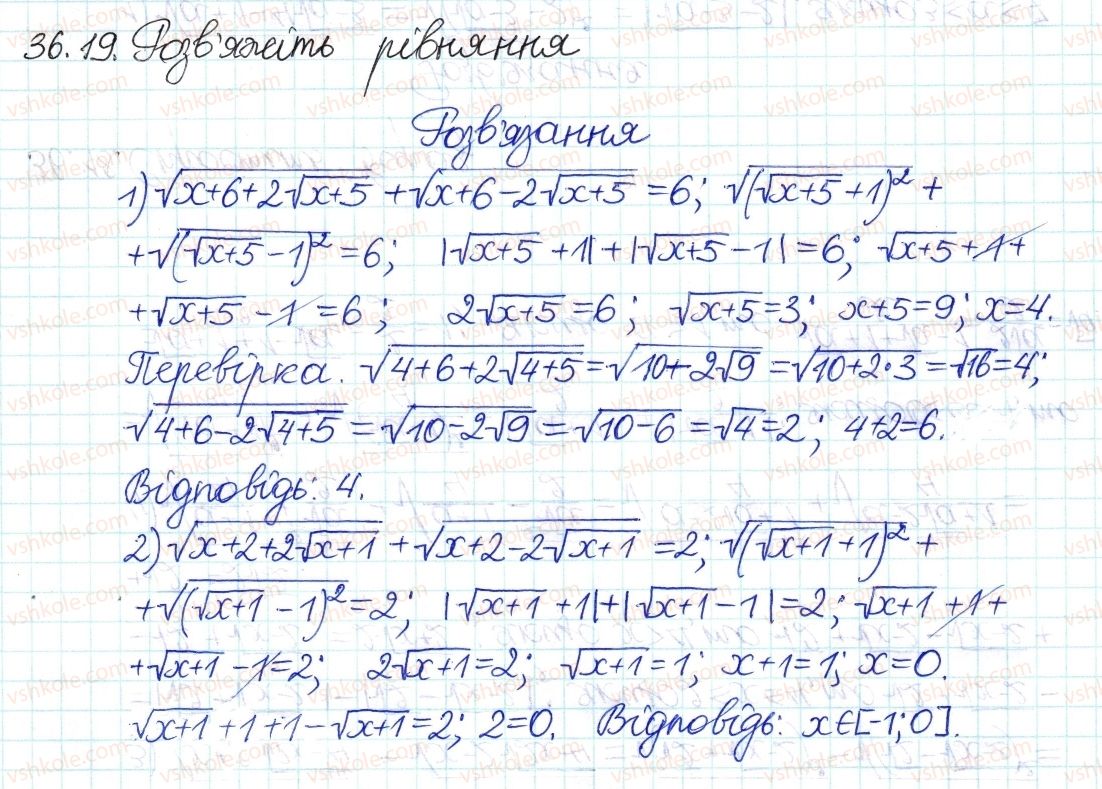 36.19. Розв'яжіть рівняння
Розв'язання
1) √(x+6+2√(x+5)) + √(x+6-2√(x+5)) = 6; √((√(x+5)+1)²) +
+ √((√(x+5)-1)²) = 6; |√(x+5)+1| + |√(x+5)-1| = 6; √(x+5) + 1 +
+ √(x+5) - 1 = 6; 2√(x+5) = 6; √(x+5) = 3; x+5=9; x=4.
Перевірка. √(4+6+2√(4+5)) = √(10+2√9) = √(10+2·3) = √16 = 4;
√(4+6-2√(4+5)) = √(10-2√9) = √(10-6) = √4 = 2; 4+2=6.
Відповідь: 4.
2) √(x+2+2√(x+1)) + √(x+2-2√(x+1)) = 2; √((√(x+1)+1)²) +
+ √((√(x+1)-1)²) = 2; |√(x+1)+1| + |√(x+1)-1| = 2; √(x+1) + 1 +
+ √(x+1) - 1 = 2; 2√(x+1) = 2; √(x+1) = 1; x+1=1; x=0.
√(x+1) + 1 + 1 - √(x+1) = 2; 2=0. Відповідь: x∈[-1;0].
vshkole.com